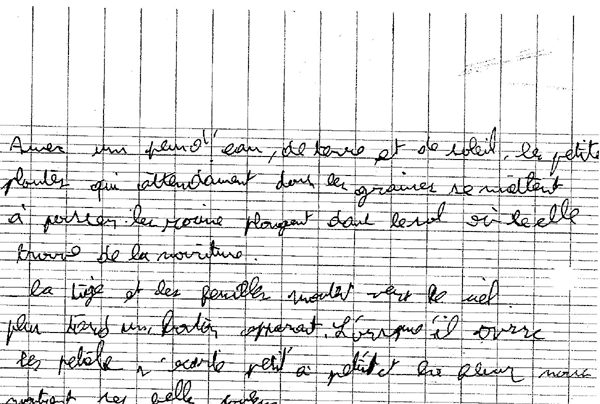 Avec un peu d'eau, de terre et de soleil, les petite
plantes qui attendament dans les graines se mettent
à pousser. les racine plongent dans le sol où le elle
trouve de la nouriture.
La tige et des feuilles montet vert le ciel.
plus tard un boton apparat. Lorsque il ouvre
ses petale s'écarte petit à petit et la fleur nous
montient ses belle couleur